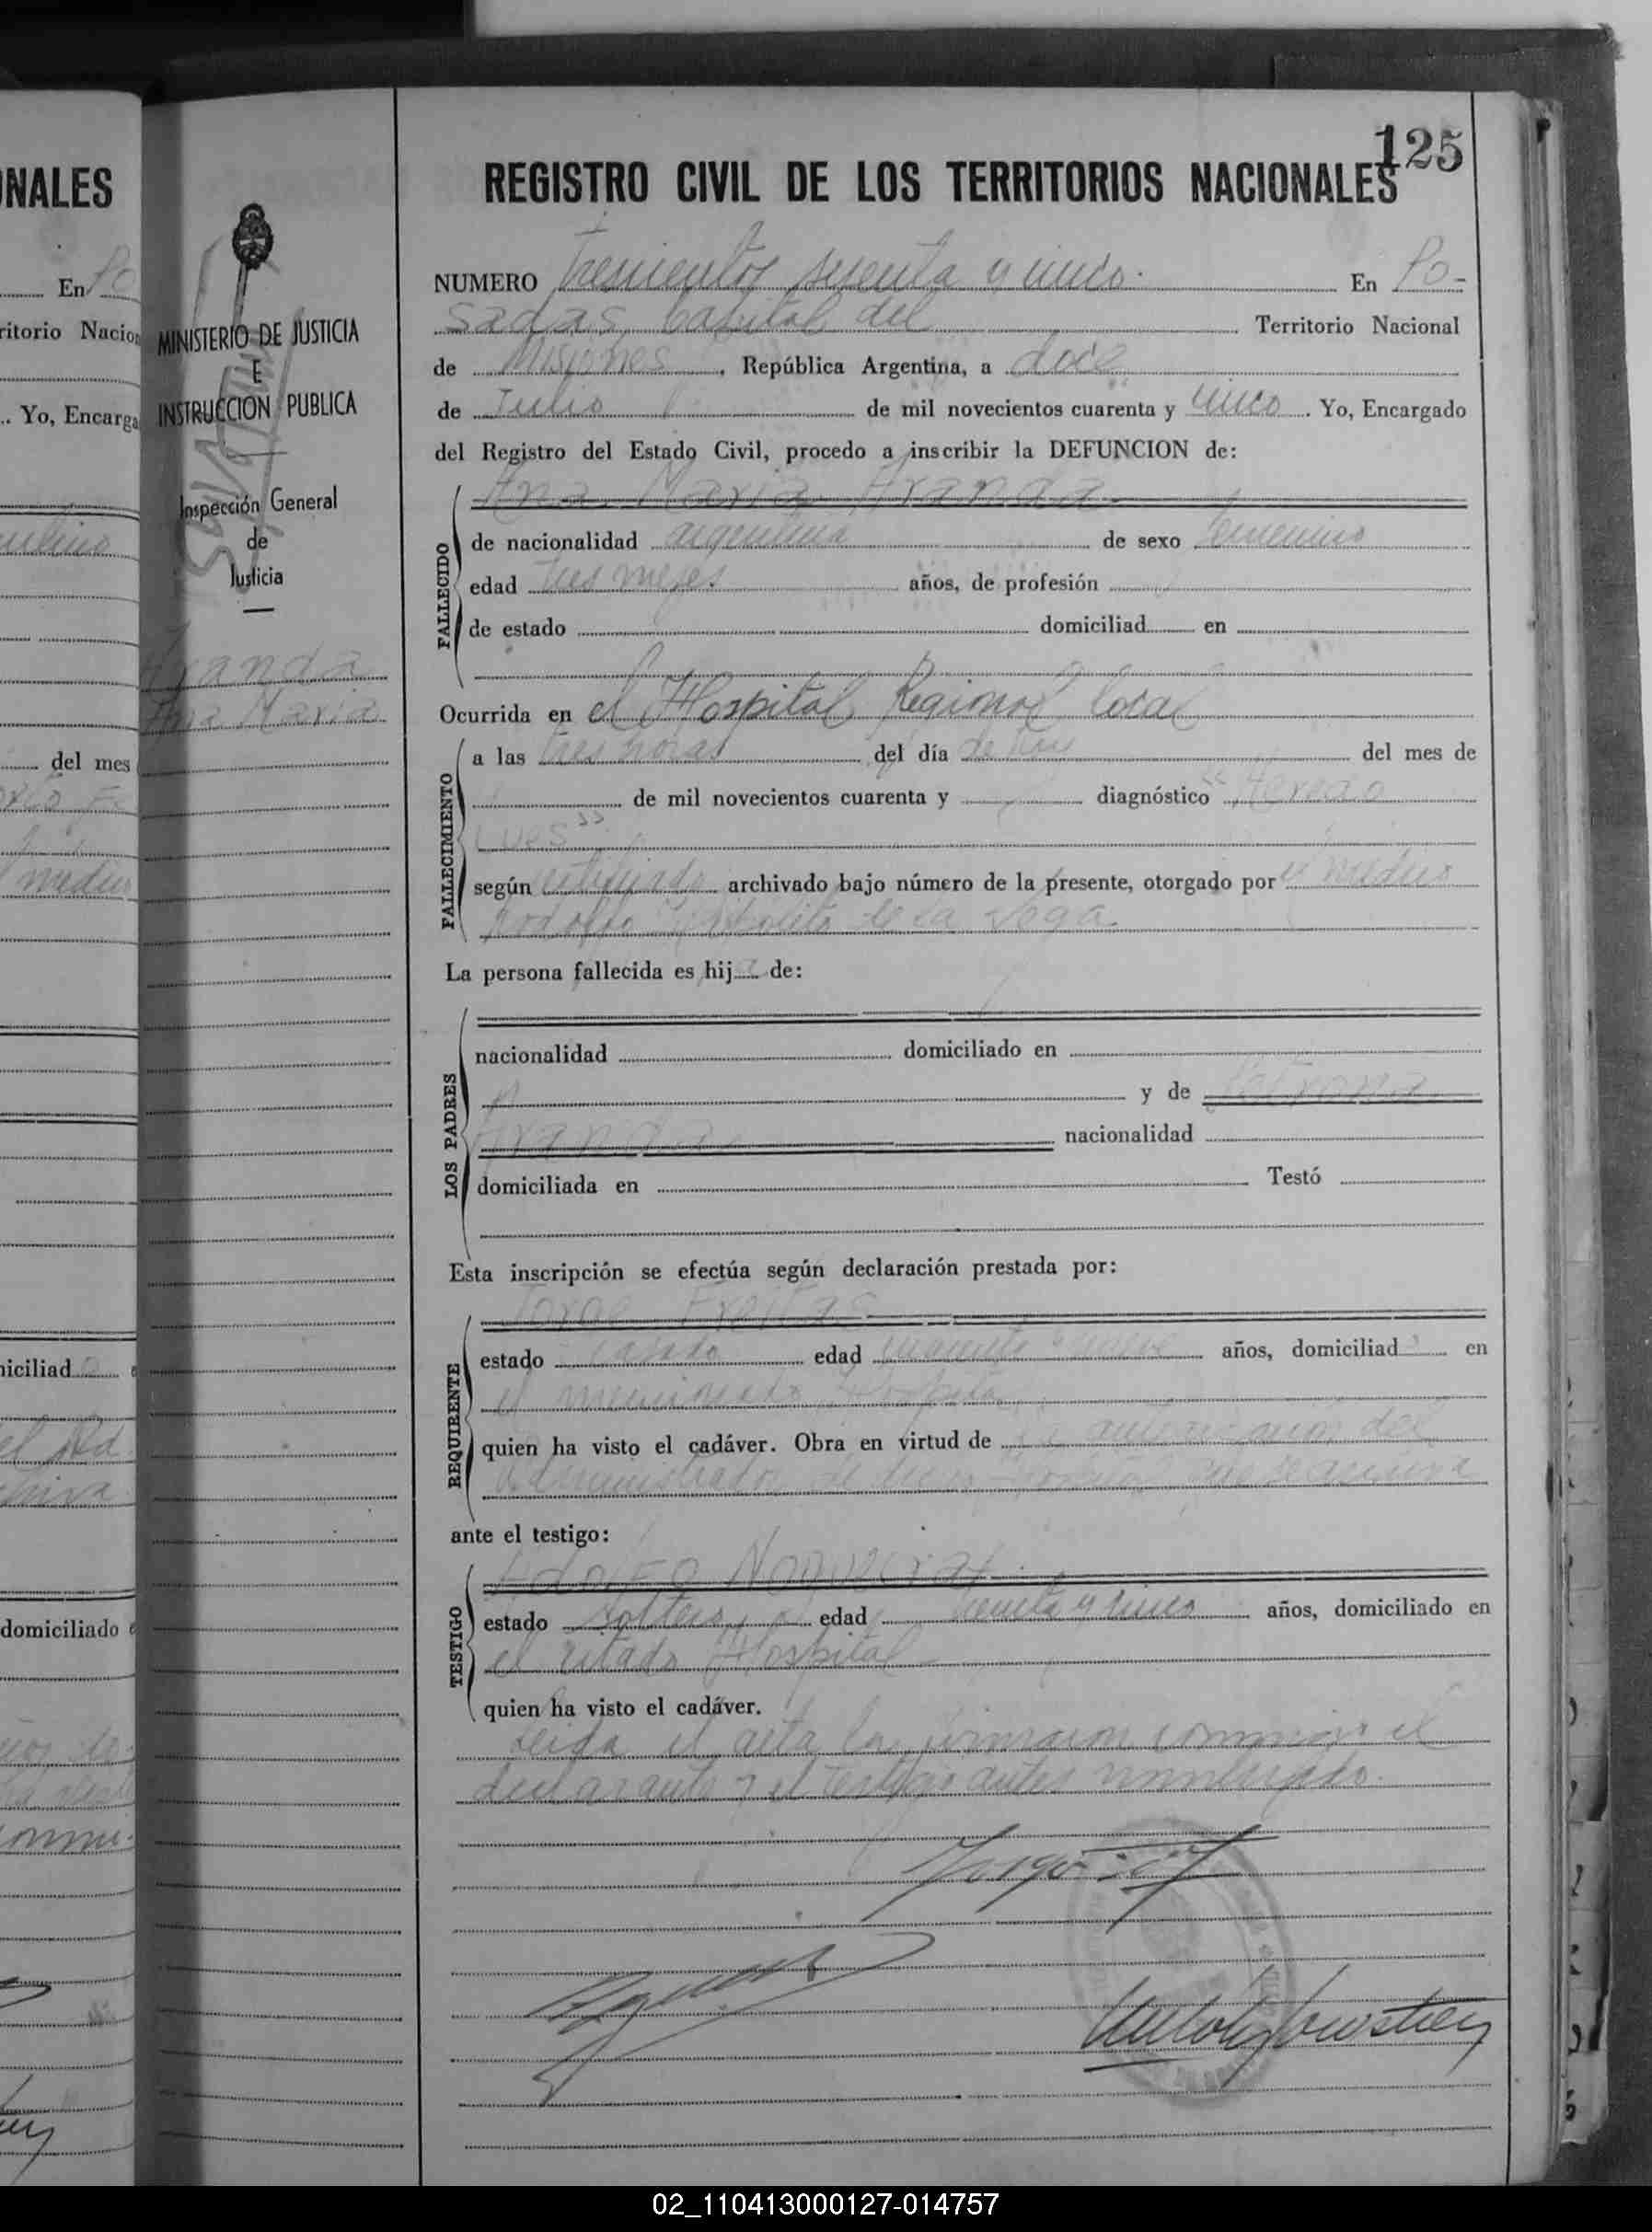 NALES
En Po
ritorio Nacion
.. Yo, Encarga
del mes
iciliad
domiciliado
MINISTERIO DE JUSTICIA
E
INSTRUCCION PUBLICA
Inspección General
de
Justicia
Aranda
Ana Maria
125
REGISTRO CIVIL DE LOS TERRITORIOS NACIONALES
NUMERO Trescientos sesenta y uno. En Po-
sadas, Capital del Territorio Nacional
de Misiones, República Argentina, a doce
de Julio de mil novecientos cuarenta y uno. Yo, Encargado
del Registro del Estado Civil, procedo a inscribir la DEFUNCION de:
Ana Maria Aranda
FALLECIDO
de nacionalidad argentina de sexo femenino
edad tres meses años, de profesión
de estado domiciliad en
Ocurrida en el Hospital Regional local
FALLECIMIENTO
a las tres horas del día de hoy del mes de
de mil novecientos cuarenta y diagnóstico "Heredo
Lues"
según certificado archivado bajo número de la presente, otorgado por el médico
Rodolfo de la Vega
La persona fallecida es hija de:
LOS PADRES
nacionalidad domiciliado en
y de Petrona
Aranda nacionalidad
domiciliada en Testó
Esta inscripción se efectúa según declaración prestada por:
Jorge Freitas
REQUIRENTE
estado casado edad años, domiciliado en
el mencionado Hospital
quien ha visto el cadáver. Obra en virtud de la autorización del
administrador de dicho Hospital que se archiva
ante el testigo:
Adolfo Noguera
TESTIGO
estado soltero, edad treinta y cinco años, domiciliado en
el citado Hospital
quien ha visto el cadáver.
Leida el acta la firmaron conmigo el
declarante y el testigo antes mencionado.
02_110413000127-014757